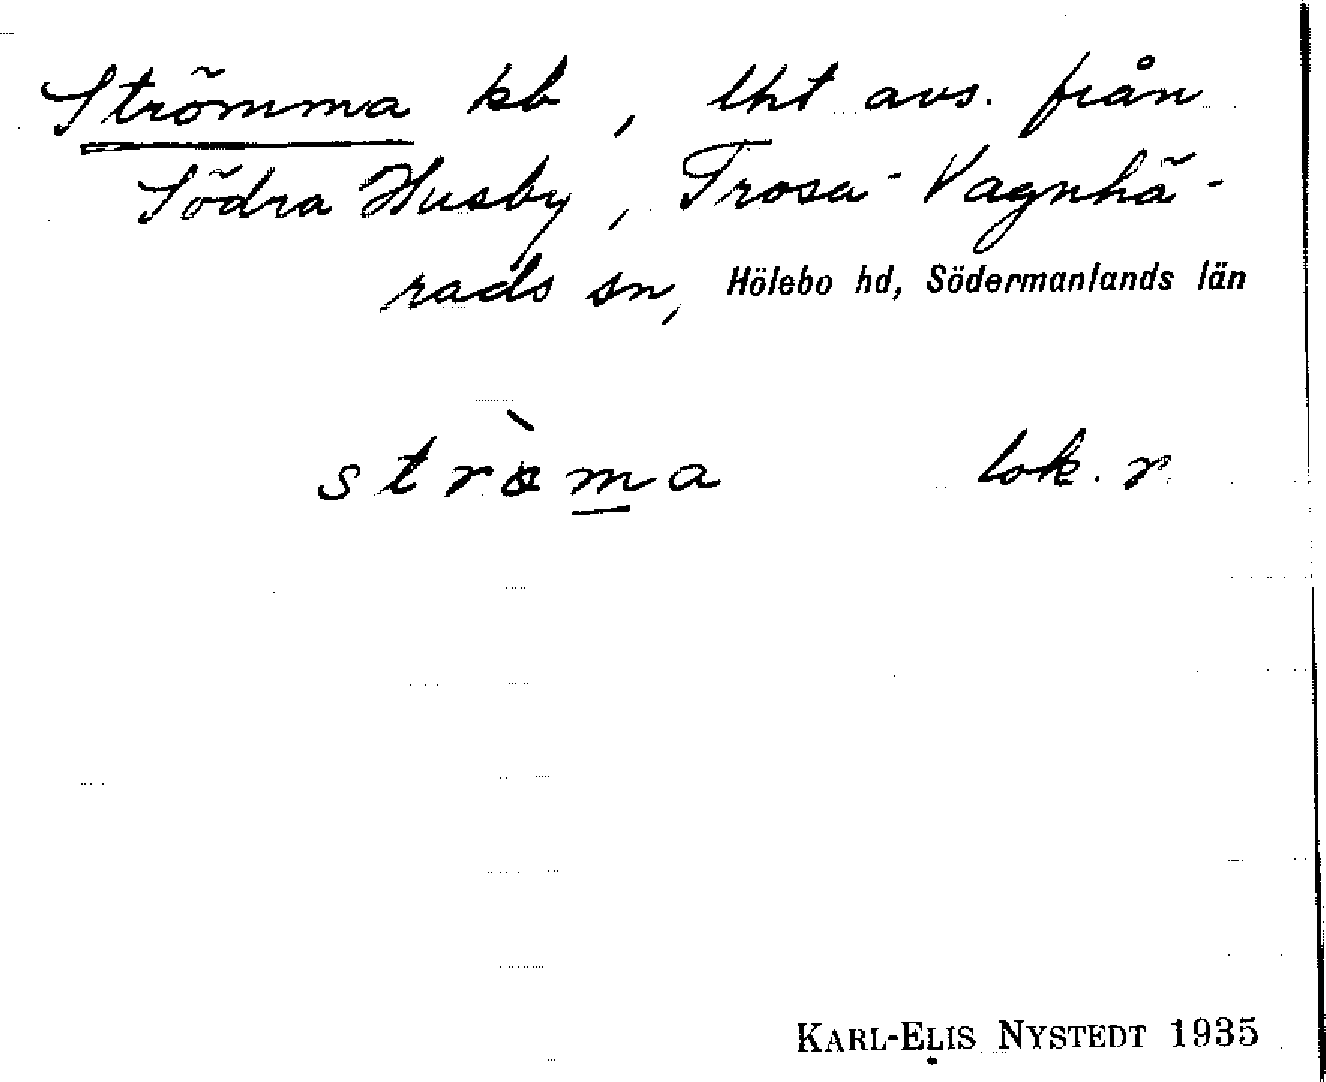 Strömma kb, lht avs. från
Södra Husby, Trosa-Vagnhä-
rads sn, Hölebo hd, Södermanlands län
strö̀ma lok. r.
KARL-ELIS NYSTEDT 1935